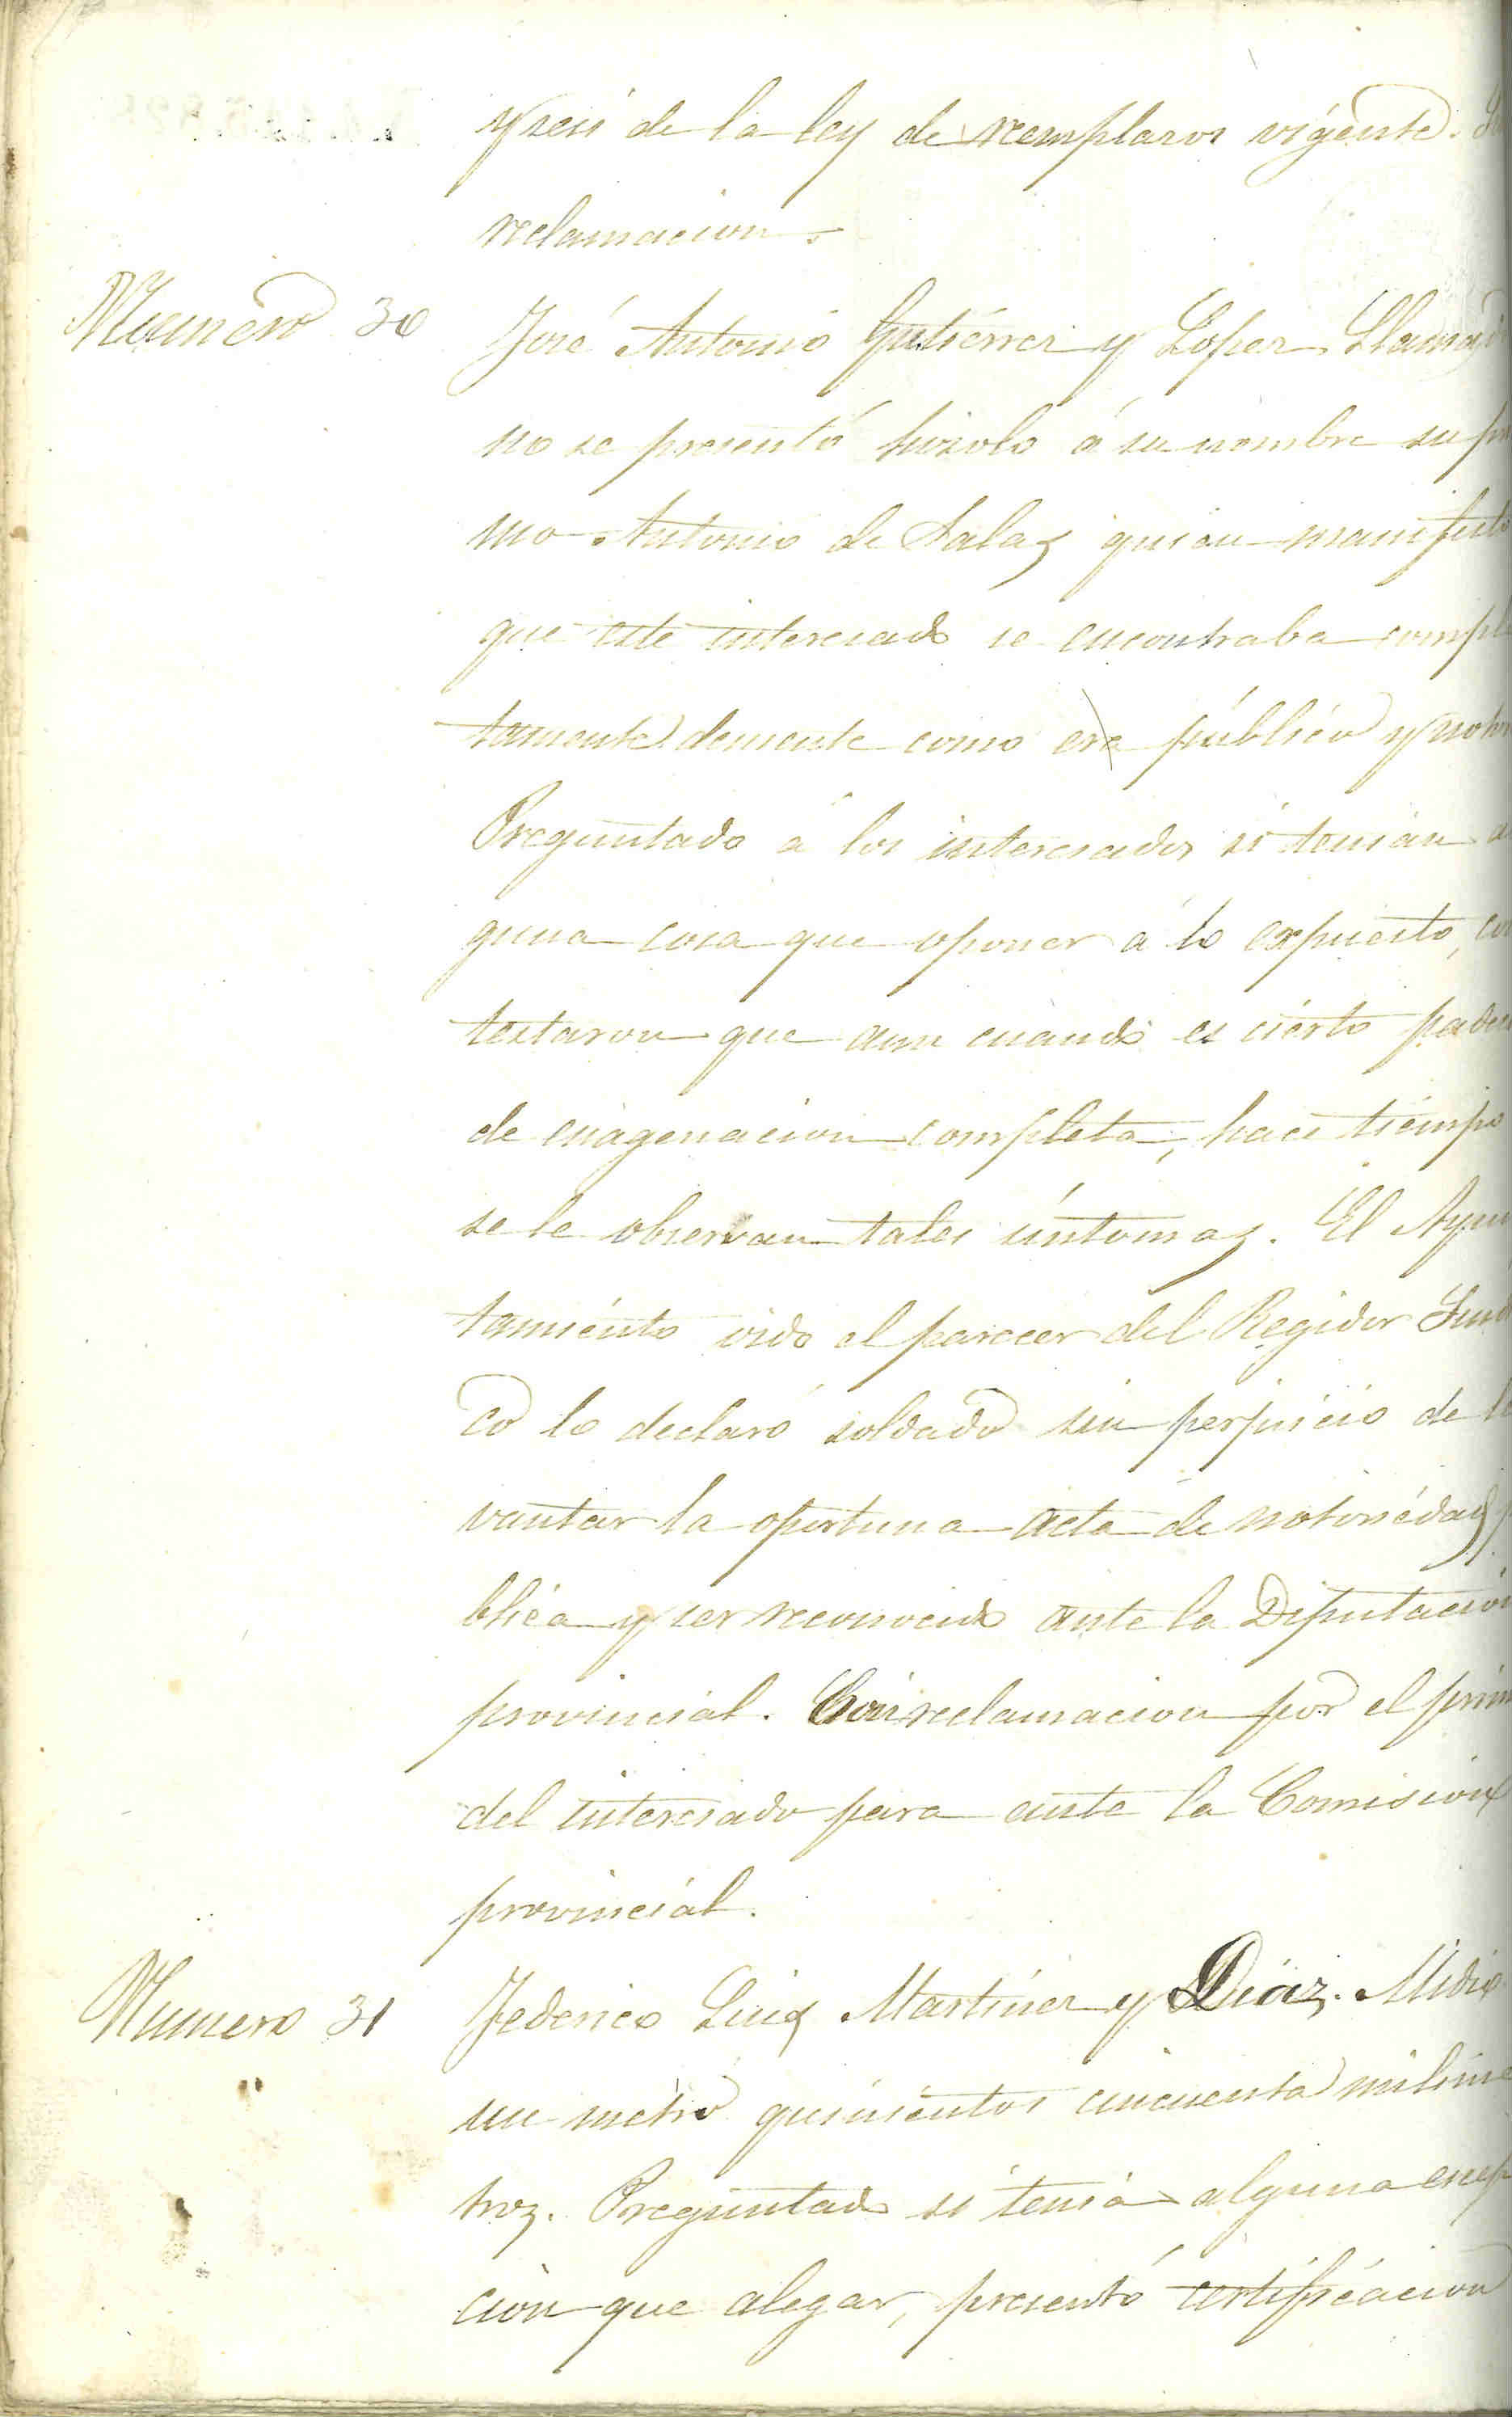 y seis de la ley de remplazos vigente. S
reclamacion.
Numero 30
José Antonio Gutiérrez y Lopez. Llamado
no se presentó hizolo á su nombre su pri
mo Antonio de Salas quien manifestó
que este interesado se encontraba comple
tamente demente como era público y notor
Preguntado á los interesados si tenian a
guna cosa que oponer á lo expuesto, con
testaron que aun cuando es cierto padec
de enagenacion completa, hace tiempo
se le observan tales síntomas. El Ayun
tamiento oido el parecer del Regidor Sindi
co lo declaró soldado sin perjuicio de le
vantar la oportuna acta de notoriedad p
blica y ser reconocido ante la Diputacion
provincial. Con reclamacion por el prim
del interesado para ante la Comision
provincial.
Numero 31
Federico Luis Martinez y Diaz. Midio
un metro quinientos cincuenta milime
tros. Preguntado si tenia alguna excep
cion que alegar, presentó certificacion